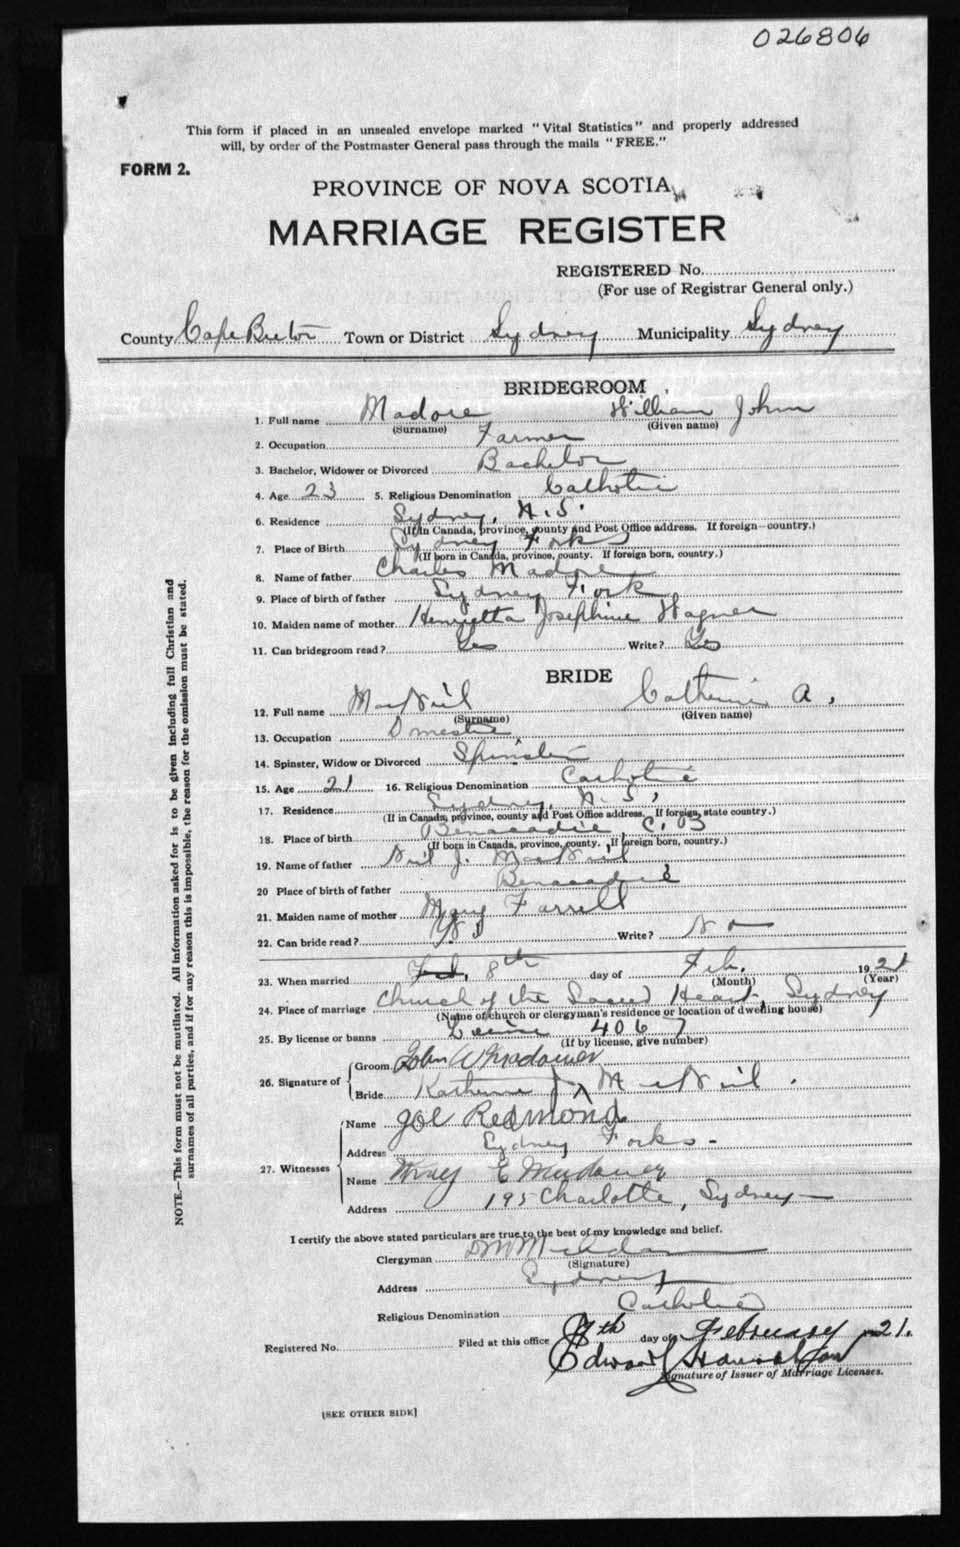 026806
This form if placed in an unsealed envelope marked "Vital Statistics" and properly addressed
will, by order of the Postmaster General pass through the mails "FREE."
FORM 2.
PROVINCE OF NOVA SCOTIA
MARRIAGE REGISTER
REGISTERED No.
(For use of Registrar General only.)
County Cape Breton Town or District Sydney Municipality Sydney
BRIDEGROOM
1. Full name Madore William John
(Surname) (Given name)
2. Occupation Farmer
3. Bachelor, Widower or Divorced Bachelor
4. Age 23 5. Religious Denomination Catholic
6. Residence Sydney, N.S.
(If in Canada, province, county and Post Office address. If foreign—country.)
7. Place of Birth Sydney Forks
(If born in Canada, province, county. If foreign born, country.)
8. Name of father Charles Madore
9. Place of birth of father Sydney Fork
10. Maiden name of mother Henrietta Josephine Wagner
11. Can bridegroom read? Yes Write? Yes
BRIDE
12. Full name MacNeil Catherine A.
(Surname) (Given name)
13. Occupation Domestic
14. Spinster, Widow or Divorced Spinster
15. Age 21 16. Religious Denomination Catholic
17. Residence Sydney, N.S.
(If in Canada, province, county and Post Office address. If foreign, state country.)
18. Place of birth Benacadie, C.B
(If born in Canada, province, county. If foreign born, country.)
19. Name of father Neil J. MacNeil
20 Place of birth of father Benacadie
21. Maiden name of mother Mary Farrell
22. Can bride read? Write? No
23. When married 8th day of Feb. 1921
(Month) (Year)
24. Place of marriage Church of the Sacred Heart, Sydney
(Name of church or clergyman's residence or location of dwelling house)
25. By license or banns License 4067
(If by license, give number)
26. Signature of
Groom John W
Bride Katherine MacNeil.
27. Witnesses
Name Joe Redmond
Address Sydney Forks-
Name E
Address 195 Charlotte, Sydney—
I certify the above stated particulars are true to the best of my knowledge and belief.
Clergyman
(Signature)
Address Sydney
Religious Denomination Catholic
Registered No. Filed at this office 8th day of February 1921.
Edward
Signature of Issuer of Marriage Licenses.
[SEE OTHER SIDE]
NOTE.—This form must not be mutilated. All information asked for is to be given including full Christian and
surnames of all parties, and if for any reason this is impossible, the reason for the omission must be stated.